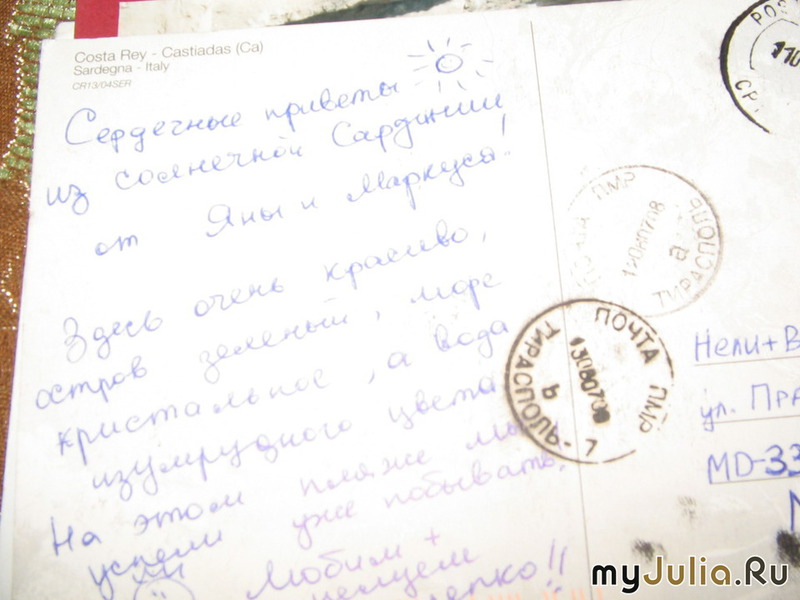 Costa Rey - Castiadas (Ca)
Sardegna - Italy
CR13/04SER
Сердечные приветы
из солнечной Сардинии
от Яны и Маркуса!
Здесь очень красиво,
остров зеленый, море
кристальное, а вода
изумрудного цвета
На этом пляже мы
успели уже побывать.
Любим +
целуем
крепко!!
ПМР
ТИРАСПОЛЬ
а
ПОЧТА ПМР
ТИРАСПОЛЬ - 7
в
Нели+В
ул. ПРА
MD-33
myJulia.Ru